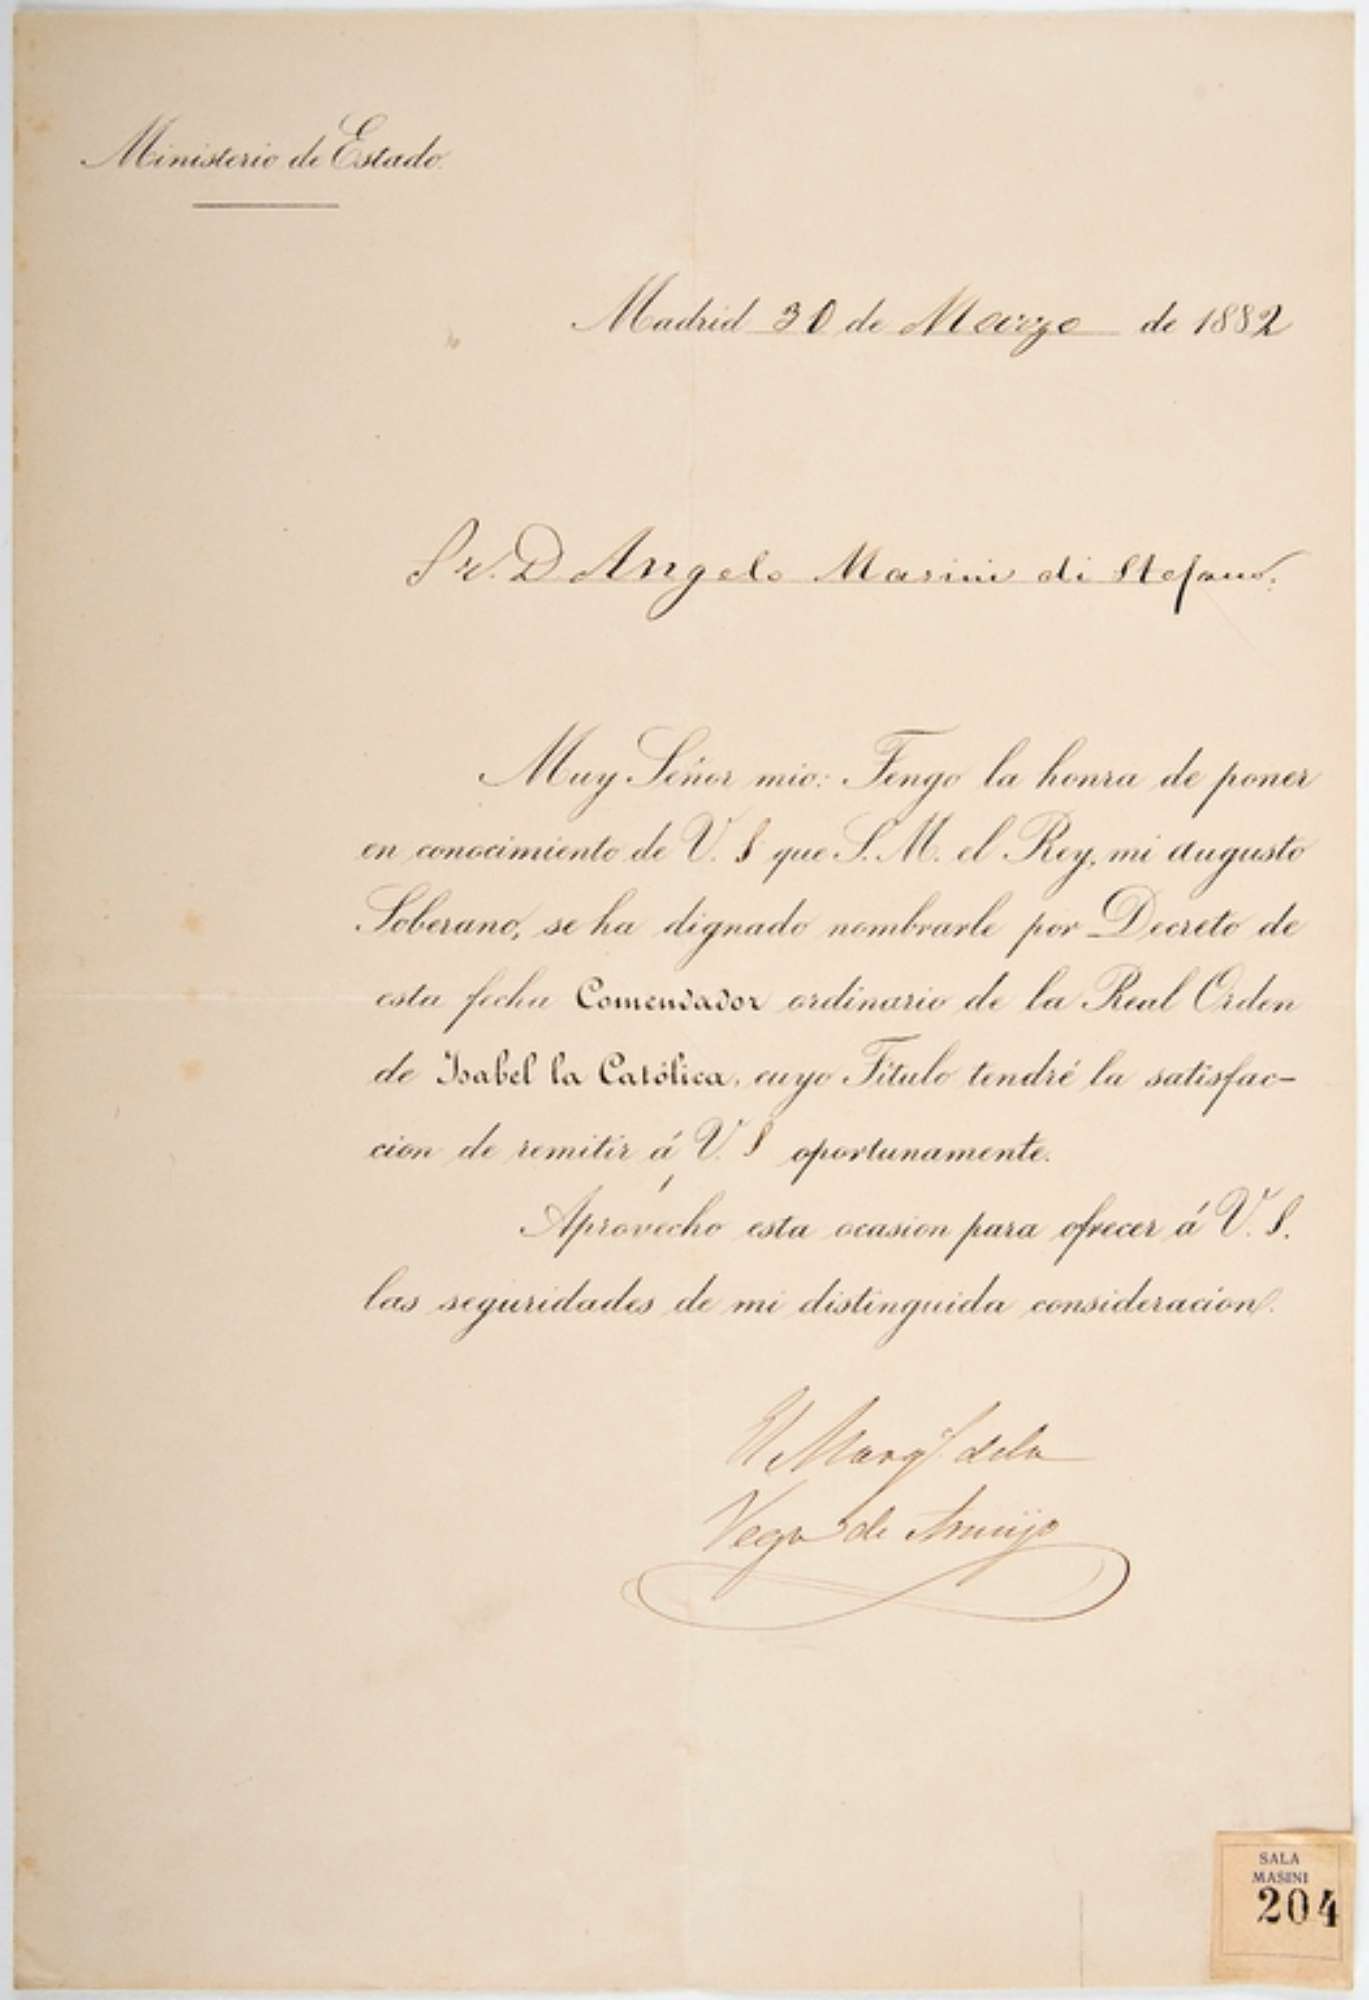 Ministerio de Estado.
Madrid 30 de Marzo de 1882
Sr. D. Angelo Masini di Stefano.
Muy Señor mio: Tengo la honra de poner
en conocimiento de V. S que S. M. el Rey, mi augusto
Soberano, se ha dignado nombrarle por Decreto de
esta fecha Comendador ordinario de la Real Orden
de Isabel la Católica, cuyo Título tendré la satisfac-
cion de remitir á V. S oportunamente.
Aprovecho esta ocasion para ofrecer á V. S.
las seguridades de mi distinguida consideracion.
El Marqs. dela
Vega de Armijo
SALA
MASINI
204